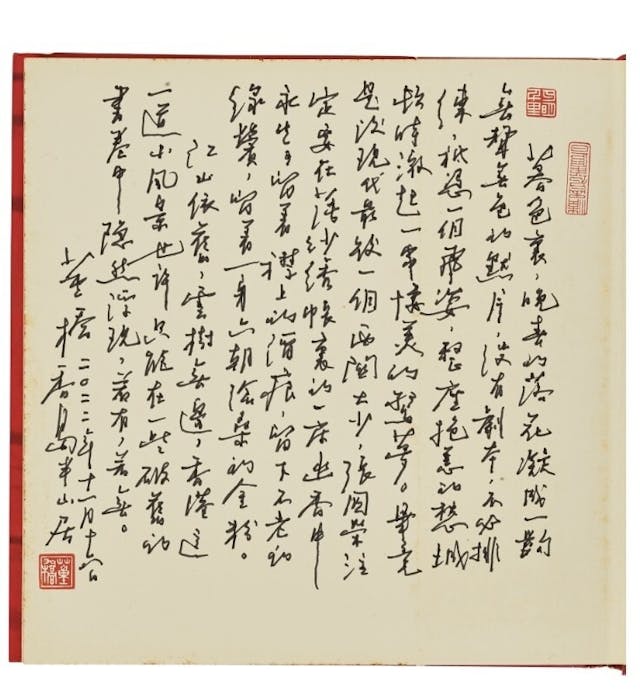 暮色裏，晚春的落花凝成一齣
無聲無色的默片，沒有劇本，不必排
練，祇憑一個飛姿，整座抱恙的愁城
頓時激起一串悽美的驚夢。畢竟
是後現代最後一個西關大少，張國榮註
定要在薄紗繡帳裏的一床幽香中
永生：留着襟上的酒痕，留下不老的
綠鬢，留着一身六朝滄桑的金粉。
江山依舊，雲樹無邊，香港這
一道小風景也許只能在一些破舊的
書卷中隱然浮現，若有，若無。
二〇二二年十一月
董橋香島半山居
董橋